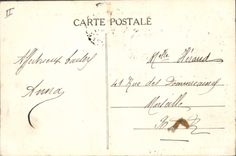 II
CARTE POSTALE
Affectueux baisers
Anna
Melle Héraud
41 Rue des Dominicaines
Marseille
B. d. R